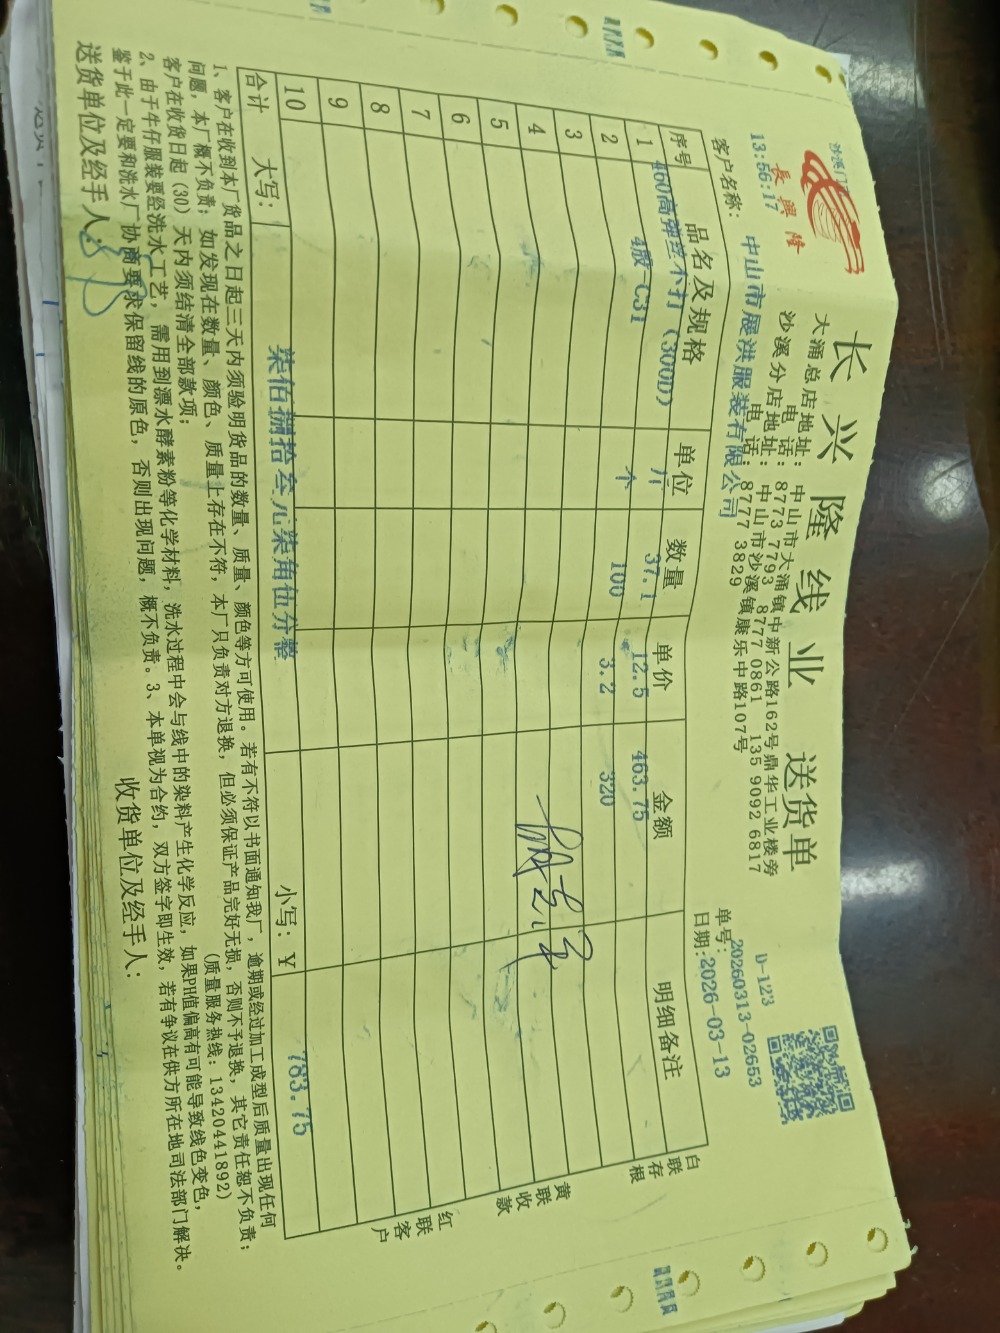 長興隆
沙溪门
13:56:17
长兴隆线业 送货单
大涌总店地址: 中山市大涌镇中新公路162号鼎华工业楼旁
电话: 8773 7793 8777 0861 135 9092 6817
沙溪分店地址: 中山市沙溪镇康乐中路107号
电话: 8777 3829
D-123
单号: 20260313-02653
客户名称: 中山市展洪服装有限公司
日期: 2026-03-13
序号 品名及规格 单位 数量 单价 金额 明细备注
1 460高弹丝不打(300D) 斤 37.1 12.5 463.75
2 4股 C31 个 100 3.2 320
3
4
5
6
7
8
9
10
合计 大写: 柒佰捌拾叁元柒角伍分整 小写: ¥ 783.75
白联存根
黄联收款
红联客户
1、客户在收到本厂货品之日起三天内须验明货品的数量、质量、颜色等方可使用。若有不符以书面通知我厂,逾期或经过加工成型后质量出现任何
问题,本厂概不负责;如发现在数量、颜色、质量上存在不符,本厂只负责对方退换,但必须保证产品完好无损,否则不予退换,其它责任恕不负责;
客户在收货日起(30)天内须结清全部款项; (质量服务热线:13420441892)
2、由于牛仔服装要经洗水工艺,需用到漂水酵素粉等化学材料,洗水过程中会与线中的染料产生化学反应,如果PH值偏高有可能导致线色变色,
鉴于此一定要和洗水厂协商要求保留线的原色,否则出现问题,概不负责。3、本单视为合约,双方签字即生效,若有争议在供方所在地司法部门解决。
送货单位及经手人: 收货单位及经手人: